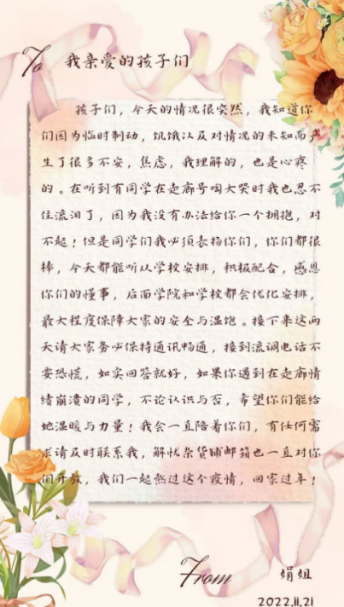 To 我亲爱的孩子们
孩子们，今天的情况很突然，我知道你
们因为临时制动，饥饿以及对情况的未知而产
生了很多不安，焦虑，我理解的，也是心疼
的。在听到有同学在走廊号啕大哭时我也忍不
住流泪了，因为我没有办法给你一个拥抱，对
不起！但是同学们我必须表扬你们，你们都很
棒，今天都能听从学校安排，积极配合，感恩
你们的懂事，后面学院和学校都会优化安排，
最大程度保障大家的安全与温饱。接下来这两
天请大家务必保持通讯畅通，接到流调电话不
要恐慌，如实回答就好，如果你遇到在走廊情
绪崩溃的同学，不论认识与否，希望你们能给
他温暖与力量！我会一直陪着你们，有任何需
求请及时联系我，解忧杂货铺邮箱也一直对你
们开放，我们一起熬过这个疫情，回家过年！
From 娟姐
2022.11.21